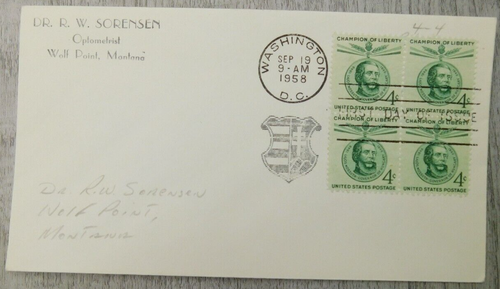 DR. R. W. SORENSEN
Optometrist
Wolf Point, Montana
WASHINGTON
SEP 19
9-AM
1958
D.C.
CHAMPION OF LIBERTY
CHAMPION OF LIBERTY
4c
4c
UNITED STATES POSTAGE
UNITED STATES POSTAGE
FIRST DAY OF ISSUE
CHAMPION OF LIBERTY
CHAMPION OF LIBERTY
4c
4c
UNITED STATES POSTAGE
UNITED STATES POSTAGE
Dr. R.W. SORENSEN
Wolf Point,
MONTANA